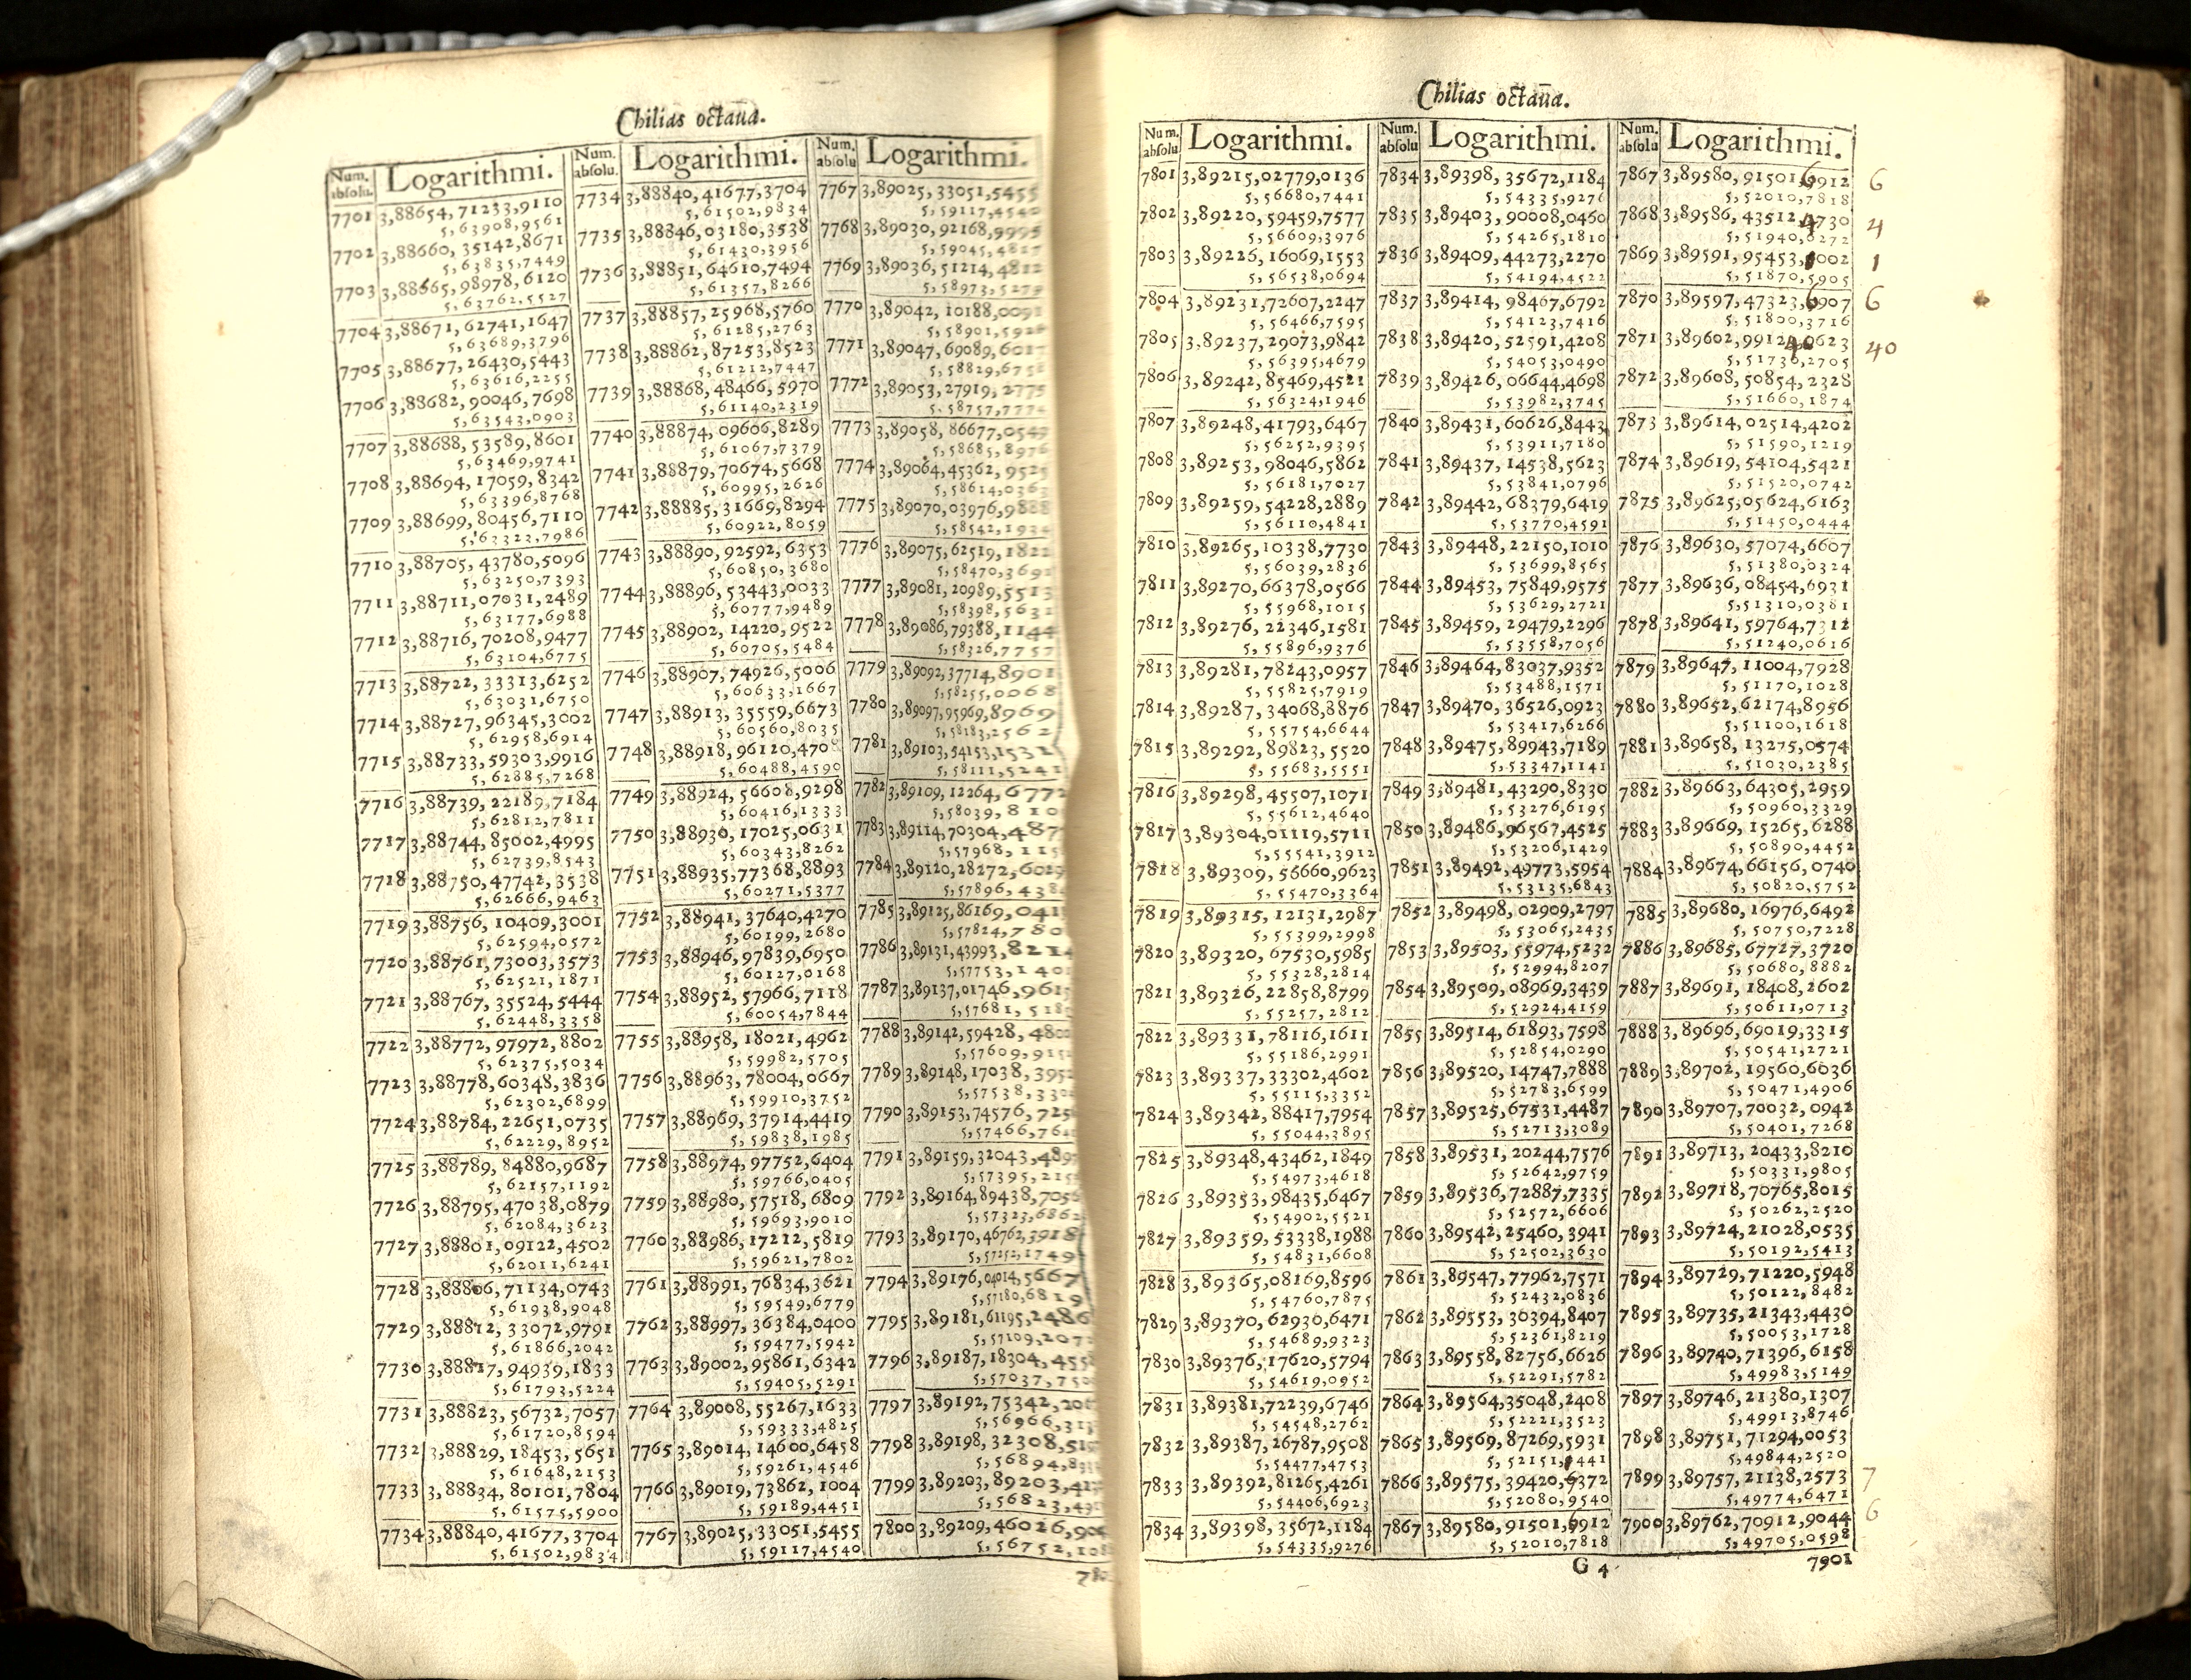 Chilias octava.
Num. absolu. Logarithmi.
7701 3,88654,71233,9110
5,63908,9561
7702 3,88660,35142,8671
5,63835,7449
7703 3,88665,98978,6120
5,63762,5527
7704 3,88671,62741,1647
5,63689,3796
7705 3,88677,26430,5443
5,63616,2255
7706 3,88682,90046,7698
5,63543,0903
7707 3,88688,53589,8601
5,63469,9741
7708 3,88694,17059,8342
5,63396,8768
7709 3,88699,80456,7110
5,63323,7986
7710 3,88705,43780,5096
5,63250,7393
7711 3,88711,07031,2489
5,63177,6988
7712 3,88716,70208,9477
5,63104,6775
7713 3,88722,33313,6252
5,63031,6750
7714 3,88727,96345,3002
5,62958,6914
7715 3,88733,59303,9916
5,62885,7268
7716 3,88739,22189,7184
5,62812,7811
7717 3,88744,85002,4995
5,62739,8543
7718 3,88750,47742,3538
5,62666,9463
7719 3,88756,10409,3001
5,62594,0572
7720 3,88761,73003,3573
5,62521,1871
7721 3,88767,35524,5444
5,62448,3358
7722 3,88772,97972,8802
5,62375,5034
7723 3,88778,60348,3836
5,62302,6899
7724 3,88784,22651,0735
5,62229,8952
7725 3,88789,84880,9687
5,62157,1192
7726 3,88795,47038,0879
5,62084,3623
7727 3,88801,09122,4502
5,62011,6241
7728 3,88806,71134,0743
5,61938,9048
7729 3,88812,33072,9791
5,61866,2042
7730 3,88817,94939,1833
5,61793,5224
7731 3,88823,56732,7057
5,61720,8594
7732 3,88829,18453,5651
5,61648,2153
7733 3,88834,80101,7804
5,61575,5900
7734 3,88840,41677,3704
5,61502,9834
Num. absolu. Logarithmi.
7734 3,88840,41677,3704
5,61502,9834
7735 3,88846,03180,3538
5,61430,3956
7736 3,88851,64610,7494
5,61357,8266
7737 3,88857,25968,5760
5,61285,2763
7738 3,88862,87253,8523
5,61212,7447
7739 3,88868,48466,5970
5,61140,2319
7740 3,88874,09606,8289
5,61067,7379
7741 3,88879,70674,5668
5,60995,2626
7742 3,88885,31669,8294
5,60922,8059
7743 3,88890,92592,6353
5,60850,3680
7744 3,88896,53443,0033
5,60777,9489
7745 3,88902,14220,9522
5,60705,5484
7746 3,88907,74926,5006
5,60633,1667
7747 3,88913,35559,6673
5,60560,8035
7748 3,88918,96120,4708
5,60488,4590
7749 3,88924,56608,9298
5,60416,1333
7750 3,88930,17025,0631
5,60343,8262
7751 3,88935,77368,8893
5,60271,5377
7752 3,88941,37640,4270
5,60199,2680
7753 3,88946,97839,6950
5,60127,0168
7754 3,88952,57966,7118
5,60054,7844
7755 3,88958,18021,4962
5,59982,5705
7756 3,88963,78004,0667
5,59910,3752
7757 3,88969,37914,4419
5,59838,1985
7758 3,88974,97752,6404
5,59766,0405
7759 3,88980,57518,6809
5,59693,9010
7760 3,88986,17212,5819
5,59621,7802
7761 3,88991,76834,3621
5,59549,6779
7762 3,88997,36384,0400
5,59477,5942
7763 3,89002,95861,6342
5,59405,5291
7764 3,89008,55267,1633
5,59333,4825
7765 3,89014,14600,6458
5,59261,4546
7766 3,89019,73862,1004
5,59189,4451
7767 3,89025,33051,5455
5,59117,4540
Num. absolu Logarithmi.
7767 3,89025,33051,5455
5,59117,4540
7768 3,89030,92168,9995
5,59045,4817
7769 3,89036,51214,4812
5,58973,5279
7770 3,89042,10188,0091
5,58901,5926
7771 3,89047,69089,6017
5,58829,6758
7772 3,89053,27919,2775
5,58757,7774
7773 3,89058,86677,0549
5,58685,8976
7774 3,89064,45362,9525
5,58614,0363
7775 3,89070,03976,9888
5,58542,1934
7776 3,89075,62519,1822
5,58470,3691
7777 3,89081,20989,5513
5,58398,5631
7778 3,89086,79388,1144
5,58326,7757
7779 3,89092,37714,8901
5,58255,0068
7780 3,89097,95969,8969
5,58183,2562
7781 3,89103,54153,1532
5,58111,5241
7782 3,89109,12264,6772
5,58039,810
7783 3,89114,70304,487
5,57968,115
7784 3,89120,28272,6029
5,57896,438
7785 3,89125,86169,041
5,57824,780
7786 3,89131,43993,8214
5,57753,140
7787 3,89137,01746,961
5,57681,518
7788 3,89142,59428,480
5,57609,915
7789 3,89148,17038,395
5,57538,330
7790 3,89153,74576,725
5,57466,764
7791 3,89159,32043,489
5,57395,215
7792 3,89164,89438,705
5,57323,6862
7793 3,89170,46762,3918
5,57252,1749
7794 3,89176,04014,5667
5,57180,6819
7795 3,89181,61195,2486
5,57109,207
7796 3,89187,18304,455
5,57037,750
7797 3,89192,75342,206
5,56966,31
7798 3,89198,32308,519
5,56894,83
7799 3,89203,89203,41
5,56823,49
7800 3,89209,46026,90
5,56752,10
780
Chilias octava.
Num. absolu Logarithmi.
7801 3,89215,02779,0136
5,56680,7441
7802 3,89220,59459,7577
5,56609,3976
7803 3,89226,16069,1553
5,56538,0694
7804 3,89231,72607,2247
5,56466,7595
7805 3,89237,29073,9842
5,56395,4679
7806 3,89242,85469,4521
5,56324,1946
7807 3,89248,41793,6467
5,56252,9395
7808 3,89253,98046,5862
5,56181,7027
7809 3,89259,54228,2889
5,56110,4841
7810 3,89265,10338,7730
5,56039,2836
7811 3,89270,66378,0566
5,55968,1015
7812 3,89276,22346,1581
5,55896,9376
7813 3,89281,78243,0957
5,55825,7919
7814 3,89287,34068,8876
5,55754,6644
7815 3,89292,89823,5520
5,55683,5551
7816 3,89298,45507,1071
5,55612,4640
7817 3,89304,01119,5711
5,55541,3912
7818 3,89309,56660,9623
5,55470,3364
7819 3,89315,12131,2987
5,55399,2998
7820 3,89320,67530,5985
5,55328,2814
7821 3,89326,22858,8799
5,55257,2812
7822 3,89331,78116,1611
5,55186,2991
7823 3,89337,33302,4602
5,55115,3352
7824 3,89342,88417,7954
5,55044,3895
7825 3,89348,43462,1849
5,54973,4618
7826 3,89353,98435,6467
5,54902,5521
7827 3,89359,53338,1988
5,54831,6608
7828 3,89365,08169,8596
5,54760,7875
7829 3,89370,62930,6471
5,54689,9323
7830 3,89376,17620,5794
5,54619,0952
7831 3,89381,72239,6746
5,54548,2762
7832 3,89387,26787,9508
5,54477,4753
7833 3,89392,81265,4261
5,54406,6923
7834 3,89398,35672,1184
5,54335,9276
Num. absolu Logarithmi.
7834 3,89398,35672,1184
5,54335,9276
7835 3,89403,90008,0460
5,54265,1810
7836 3,89409,44273,2270
5,54194,4522
7837 3,89414,98467,6792
5,54123,7416
7838 3,89420,52591,4208
5,54053,0490
7839 3,89426,06644,4698
5,53982,3745
7840 3,89431,60626,8443
5,53911,7180
7841 3,89437,14538,5623
5,53841,0796
7842 3,89442,68379,6419
5,53770,4591
7843 3,89448,22150,1010
5,53699,8565
7844 3,89453,75849,9575
5,53629,2721
7845 3,89459,29479,2296
5,53558,7056
7846 3,89464,83037,9352
5,53488,1571
7847 3,89470,36526,0923
5,53417,6266
7848 3,89475,89943,7189
5,53347,1141
7849 3,89481,43290,8330
5,53276,6195
7850 3,89486,96567,4525
5,53206,1429
7851 3,89492,49773,5954
5,53135,6843
7852 3,89498,02909,2797
5,53065,2435
7853 3,89503,55974,5232
5,52994,8207
7854 3,89509,08969,3439
5,52924,4159
7855 3,89514,61893,7598
5,52854,0290
7856 3,89520,14747,7888
5,52783,6599
7857 3,89525,67531,4487
5,52713,3089
7858 3,89531,20244,7576
5,52642,9759
7859 3,89536,72887,7335
5,52572,6606
7860 3,89542,25460,3941
5,52502,3630
7861 3,89547,77962,7571
5,52432,0836
7862 3,89553,30394,8407
5,52361,8219
7863 3,89558,82756,6626
5,52291,5782
7864 3,89564,35048,2408
5,52221,3523
7865 3,89569,87269,5931
5,52151,1441
7866 3,89575,39420,6372
5,52080,9540
7867 3,89580,91501,6912
5,52010,7818
G 4
Num. absolu Logarithmi.
7867 3,89580,91501,6912 6
5,52010,7818
7868 3,89586,43512,4730 4
5,51940,6272
7869 3,89591,95453,1002 1
5,51870,5905
7870 3,89597,47323,6907 6
5,51800,3716
7871 3,89602,99124,0623 40
5,51730,2705
7872 3,89608,50854,2328
5,51660,1874
7873 3,89614,02514,4202
5,51590,1219
7874 3,89619,54104,5421
5,51520,0742
7875 3,89625,05624,6163
5,51450,0444
7876 3,89630,57074,6607
5,51380,0324
7877 3,89636,08454,6931
5,51310,0381
7878 3,89641,59764,7312
5,51240,0616
7879 3,89647,11004,7928
5,51170,1028
7880 3,89652,62174,8956
5,51100,1618
7881 3,89658,13275,0574
5,51030,2385
7882 3,89663,64305,2959
5,50960,3329
7883 3,89669,15265,6288
5,50890,4452
7884 3,89674,66156,0740
5,50820,5752
7885 3,89680,16976,6492
5,50750,7228
7886 3,89685,67727,3720
5,50680,8882
7887 3,89691,18408,2602
5,50611,0713
7888 3,89696,69019,3315
5,50541,2721
7889 3,89702,19560,6036
5,50471,4906
7890 3,89707,70032,0942
5,50401,7268
7891 3,89713,20433,8210
5,50331,9805
7892 3,89718,70765,8015
5,50262,2520
7893 3,89724,21028,0535
5,50192,5413
7894 3,89729,71220,5948
5,50122,8482
7895 3,89735,21343,4430
5,50053,1728
7896 3,89740,71396,6158
5,49983,5149
7897 3,89746,21380,1307
5,49913,8746
7898 3,89751,71294,0053
5,49844,2520
7899 3,89757,21138,2573 7
5,49774,6471
7900 3,89762,70912,9044 6
5,49705,0598
7901